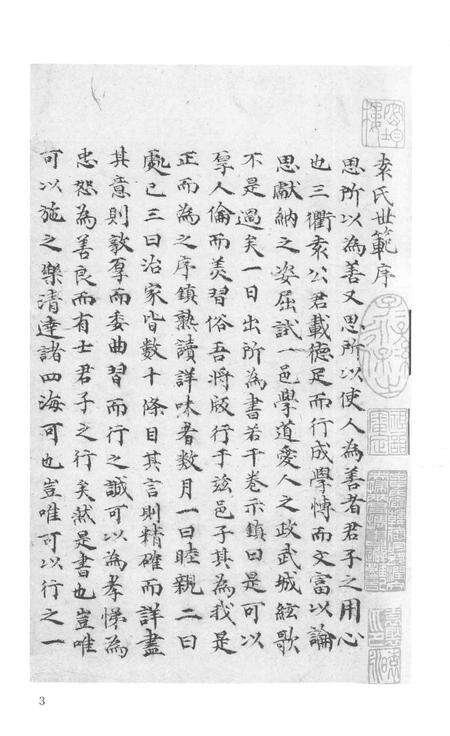 袁氏世範序
思所以為善又思所以使人為善者君子之用心
也三衢袁公君載德足而行成學愽而文富以論
思獻納之姿屈試一邑學道愛人之政武城絃歌
不是過矣一日出所為書若干卷示鎮曰是可以
厚人倫而羙習俗吾將版行于兹邑子其為我是
正而為之序鎮熟讀詳味者数月一曰睦親二曰
處己三曰治家皆数十條目其言則精確而詳盡
其意則敦厚而委曲習而行之誠可以為孝悌為
忠恕為善良而有士君子之行矣然是書也豈唯
可以施之樂清達諸四海可也豈唯可以行之一
3